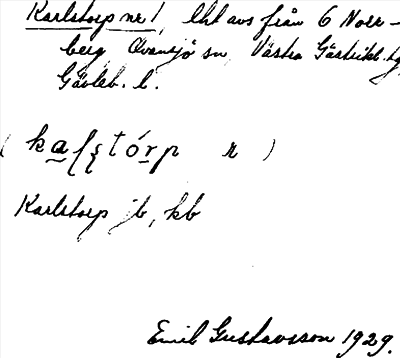 Karlstorp nr 1, lht avs från 6 Norr-
berg Ovansjö sn, Västra Gästrikl. tg
Gävleb. l.
Karlstorp jb, kb
Emil Gustavsson 1929.